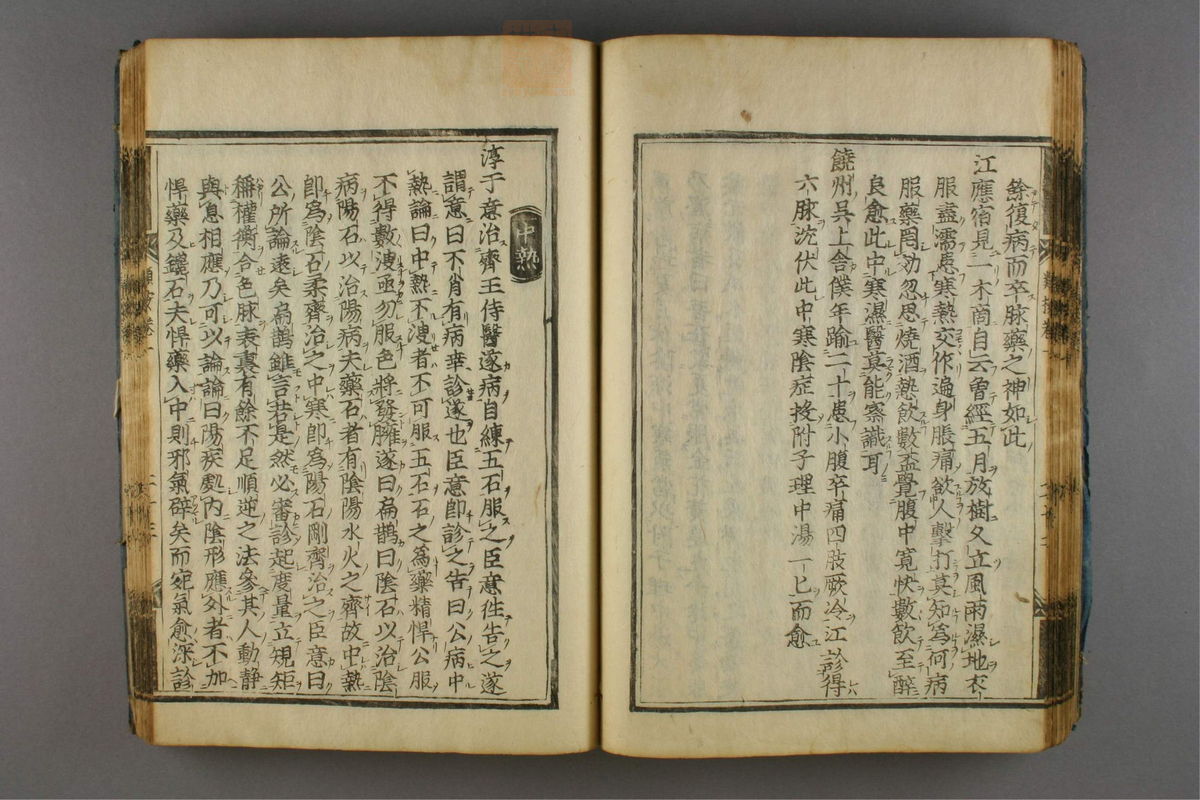 餘復病而卒脉藥之神如此
江應宿見一木商自云曾經五月放樹久立風雨濕地衣
服盡濡患寒熱交作遍身脹痛欲人擊打莫知爲何病
服藥罔効忽思燒酒熱飲數盃覺腹中寛快數飲至醉
良愈此中寒濕醫莫能察識耳
饒州呉上舎僕年踰二十患小腹卒痛四肢厥冷江診得
六脉沈伏此中寒陰症投附子理中湯一匕而愈
中熱
淳于意治齊王侍醫遂病自練五石服之臣意徃告之遂
謂意曰不肖有病幸診遂也臣意即診之告曰公病中
熱論曰中熱不溲者不可服五石石之爲藥精悍公服
不得數溲亟勿服色將發臃遂曰扁鵲曰陰石以治陰
病陽石以治陽病夫藥石者有陰陽水火之齊故中熱
即爲陰石柔齊治之中寒即爲陽石剛齊治之臣意曰
公所論遠矣扁鵲雖言若是然必審診起度量立規矩
稱權衡合色脉表裏有餘不足順逆之法參其人動静
與息相應乃可以論論曰陽疾處内陰形應外者不加
悍藥及鑱石夫悍藥入中則邪氣辟矣而宛氣愈深診